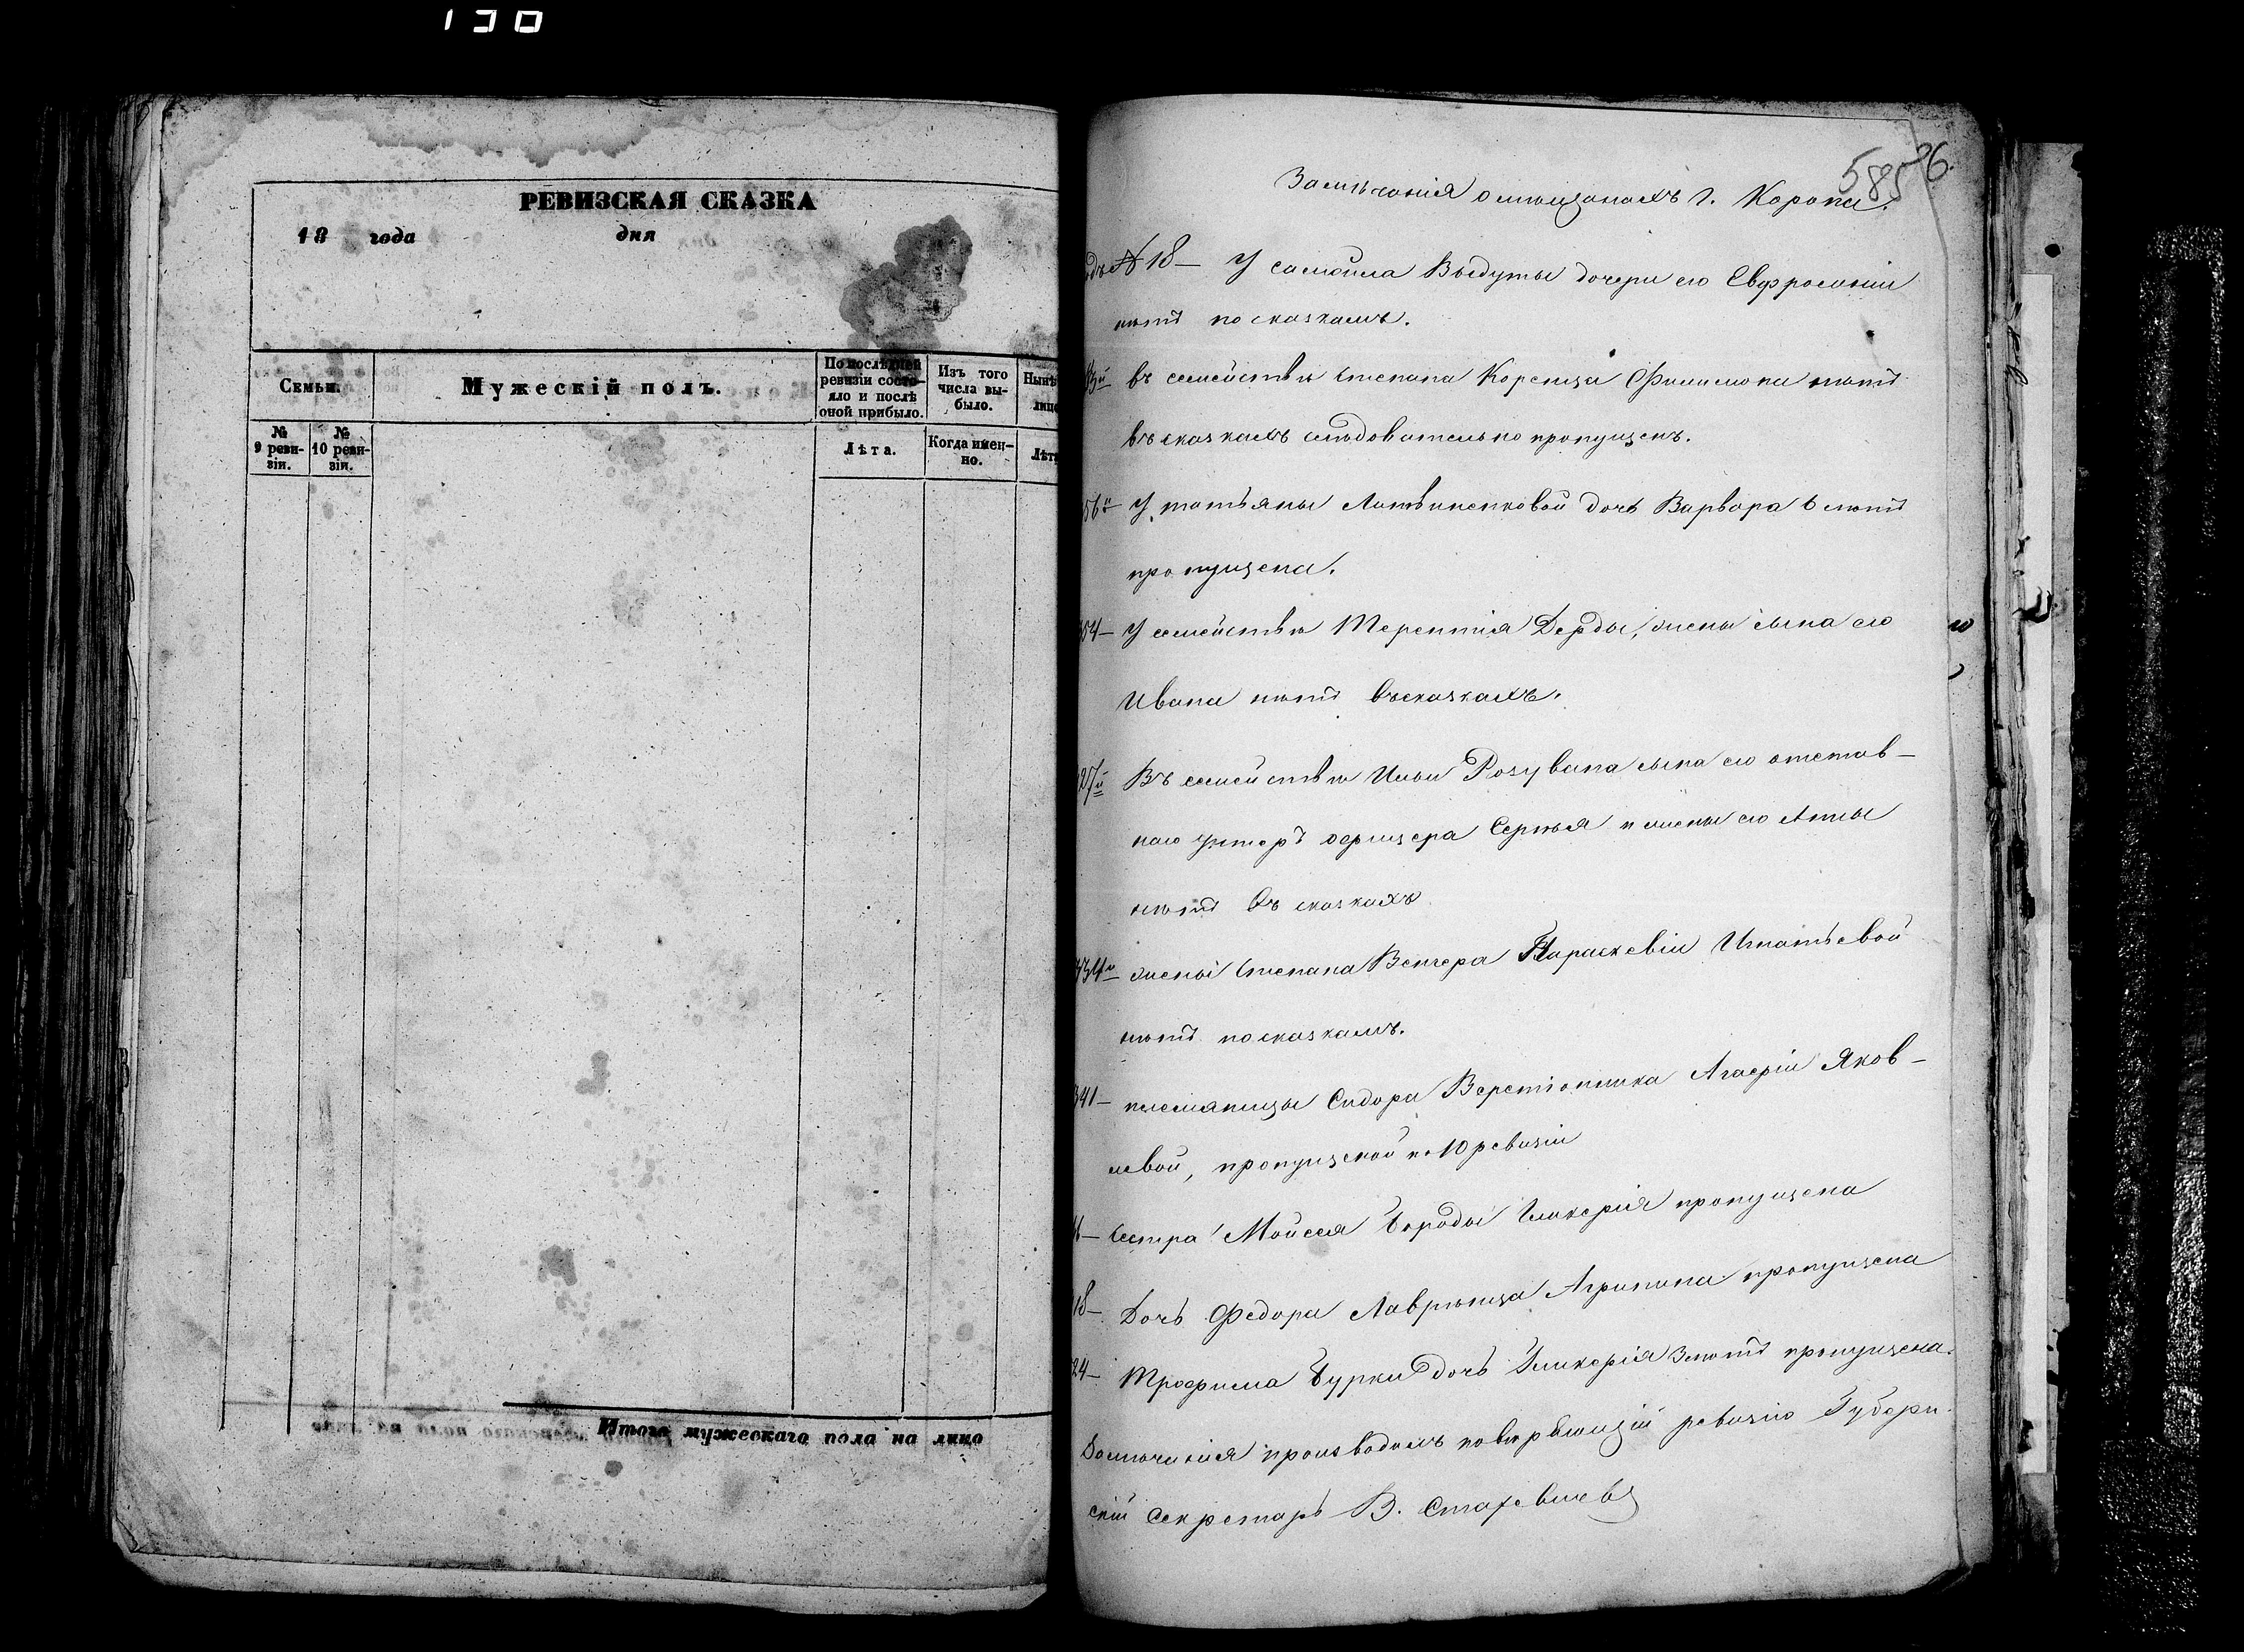 130
РЕВИЗСКАЯ СКАЗКА
18 года дня
Семьи.
Мужескій полъ.
По послѣдней ревизіи состо-
яло и послѣ
оной прибыло.
Изъ того
числа вы-
было.
Нынѣ
лицо
№
9 реви-
зіи.
№
10 реви-
зіи.
Лѣта.
Когда имен-
но.
Лѣт
Итого мужескаго пола на лицо
585
Замѣчанія о мѣщанахъ г. Коропа.
№ 18 – У Самойла Выдуты дочери его Евфросиніи
нѣтъ по сказкамъ.
въ семействѣ Степана Коренца Филимона нѣтъ
въ сказкахъ слѣдовательно пропущенъ.
56й У Татьяны Литвиненковой дочь Варвара 6 лѣтъ
пропущена.
У семействѣ Терентія Дерды, жены сына его
Ивана нѣтъ въ сказкахъ.
27й Въ семействѣ Ильи Розувана сына его отстав–
наго унтеръ офицера Сергѣя и жены его Анны
нѣтъ въ сказкахъ
34й жены Степана Венгера Параскевіи Игнатьевой
нѣтъ по сказкамъ.
341 – племянницы Сидора Агафіи Яков–
левой, пропущеной по 10 ревизіи
Сестра Мойсея Бороды Гликерія пропущена
18 – Дочь Федора Лаврѣнца Агрипина пропущена
24 – Трофима Бурки дочь Гликерія 3 лѣтъ пропущена.
производилъ ревизію Губерн
скій Секретарь В.